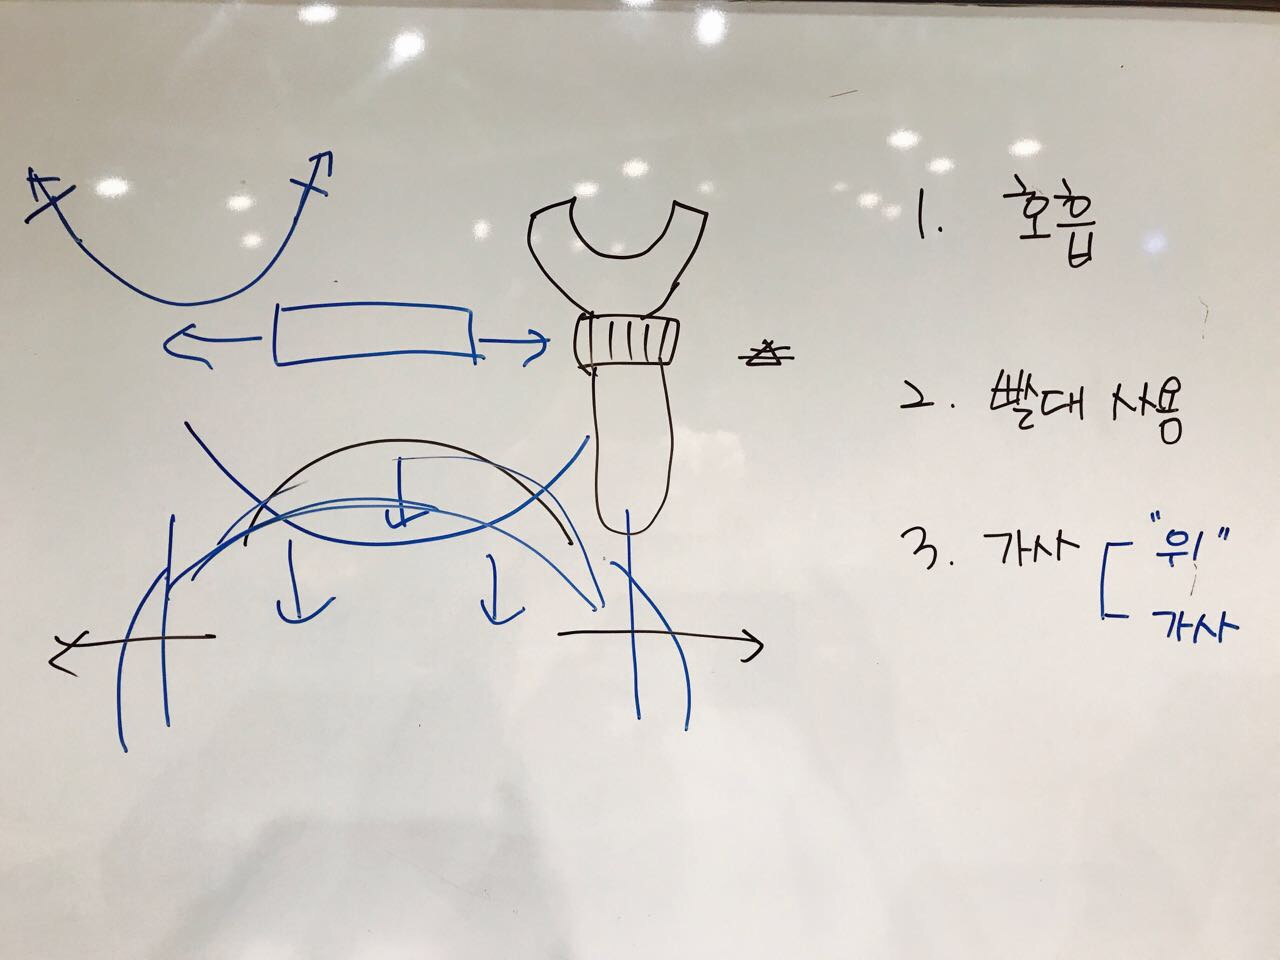 1. 호흡
2. 빨대 사용
3. 가사 "위"
가사